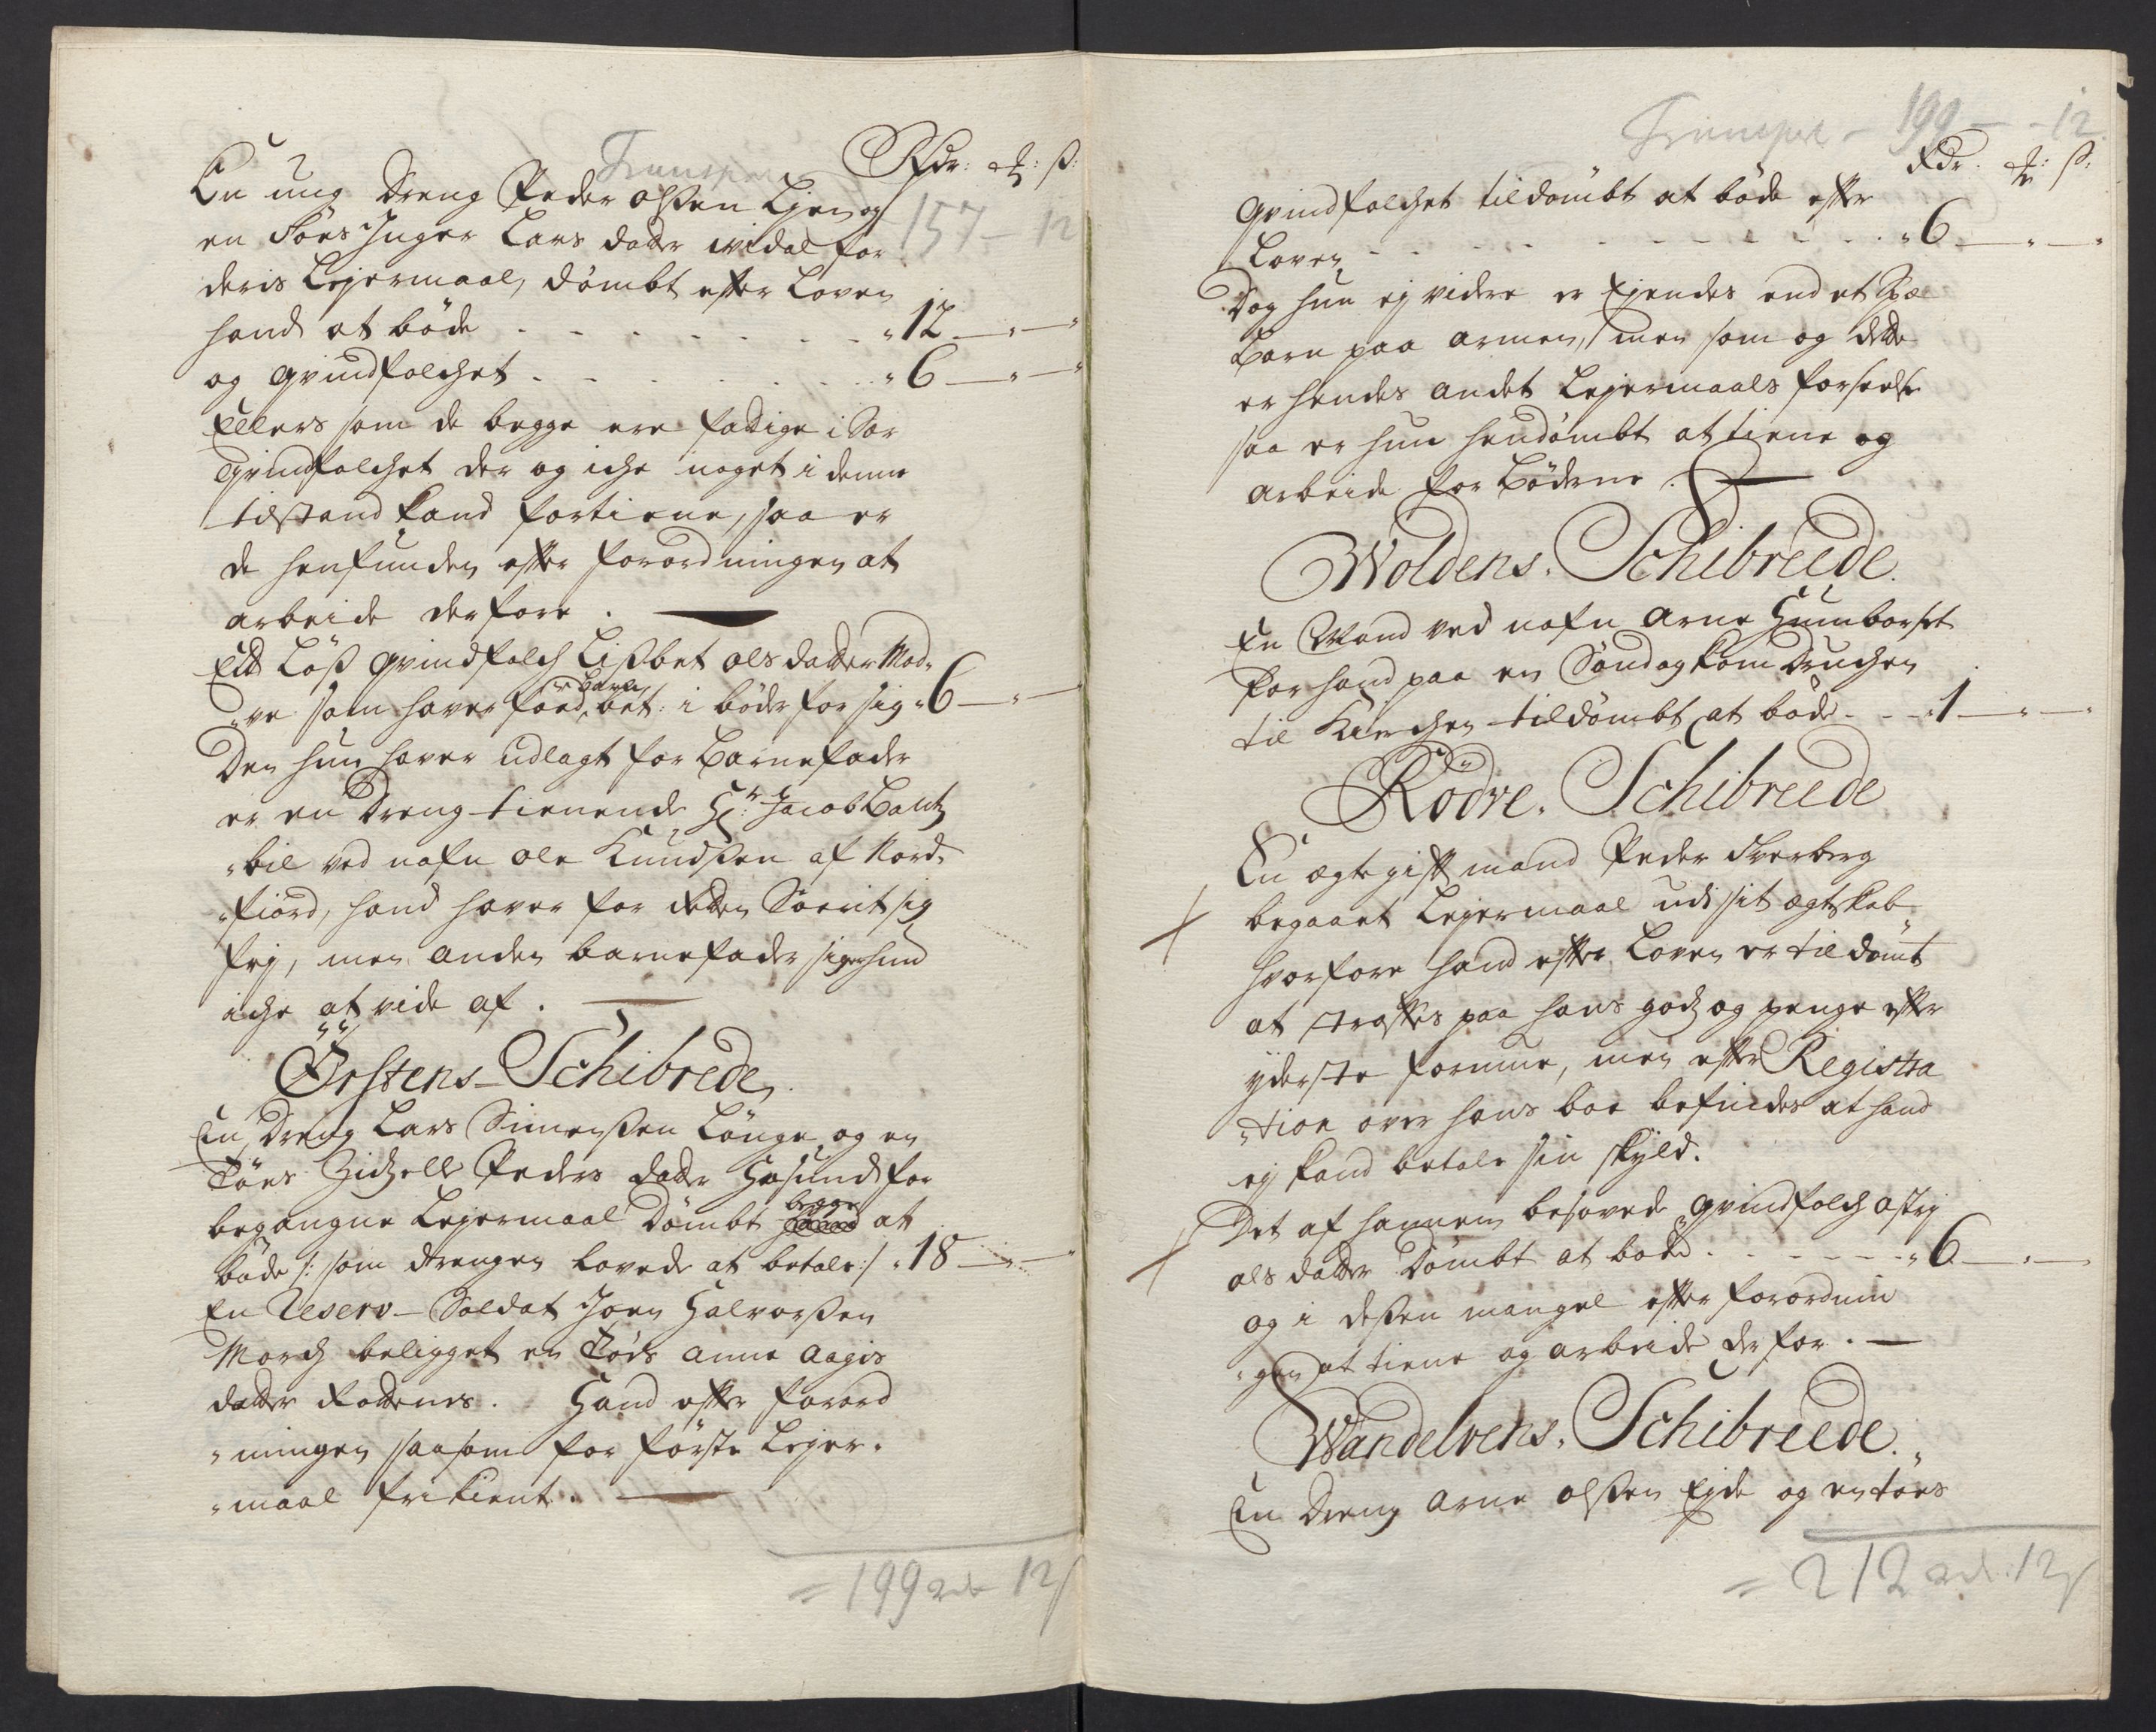 Transport
Rdr: ℔: ß:
En ung Dreng Peder Olßen Lien og
157 - 12
en Töes Inger Lars datter widal for
deris Lejermaal, dömbt efter Loven
hand at böde - - - - - - - "12 — " — "
og qvindfolchet - - - - - - - "6 — " — "
Ellers som de begge ere fattige i Sær
qvindfolchet der og iche noget i denne
tilstand kand fortiene, saa er
de henfunden efter forordningen at
arbeide derfore . —
Ett Löß qvindfolch Lißbet Olsdatter Mod-
"ve som haver föed et barn bøt: i böder for sig "6 — " —
Den hun haver udlagt for Barnefader
er en Dreng tienende Hr: Jacob Bantz
"bil ved nafn Ole Knudßen af Nord-
"fiord, hand haver for Retten Sorit sig
frj, men anden barnefader siger hun
iche at vide af . —
Örstens Schibrede
En Dreng Lars Simenßen Längr og en
Töes Zidzelle Peders datter Hasund for
begangne Lejermaal Dömbt begge at
böde /: som drengen lovede at betale :/ "18 — " —
En Reserv-Soldat Joen Halvorßen
Morch beligget en Töes Anne Aagis
datter Rottenes. Hand efter forord
"ningen saasom for förste Lejer-
"maal fri kient. —
= 199 rdr 12 ß
Transport - 199 - - 12
Rdr. ℔: ß:
qvindfolchet tildömbt at böde efter
Loven - - - - - - - - - "6 — " — "
Dog hun ej videre er Ejendes end et Spæ
Barn paa armen, men som og dette
er hendes andet Lejermaals forseelse
saa er hun hendömbt at tiene og
arbeide for Böderne . —
Woldens Schibreede.
En Mand ved nafn Arne Humborset
for hand paa en Söndag kom Druchen
til Kirchen tildömbt at böde - - - "1 — " — "
Rödve Schibreede
En ægte gift mand Peder Sverberg
begaaet Lejermaal udi sit ægteskab
hvorfore hand efter Loven er til dömt
at straffes paa hans godz og penge efter
yderste formue, men efter Registra
"tion over hans boe befindes at hand
ej kand betale sin skyld.
Det af hannem besovede qvindfolch Ostrj
Olsdatter Dömbt at böde - - - - - - "6 — " —
og i deßen mangel efter forordnin
"gen at tiene og arbeide derfor. —
Wandelvens Schibreede.
En Dreng Arne Olßen Ejde og en töes
= 212 rdr. 12 ß